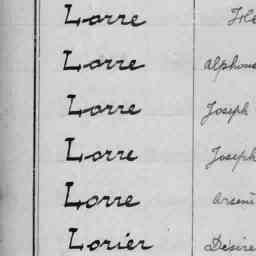 Lorre
Lorre Alphons
Lorre Joseph
Lorre Joseph
Lorre Arsen
Lorier Desire